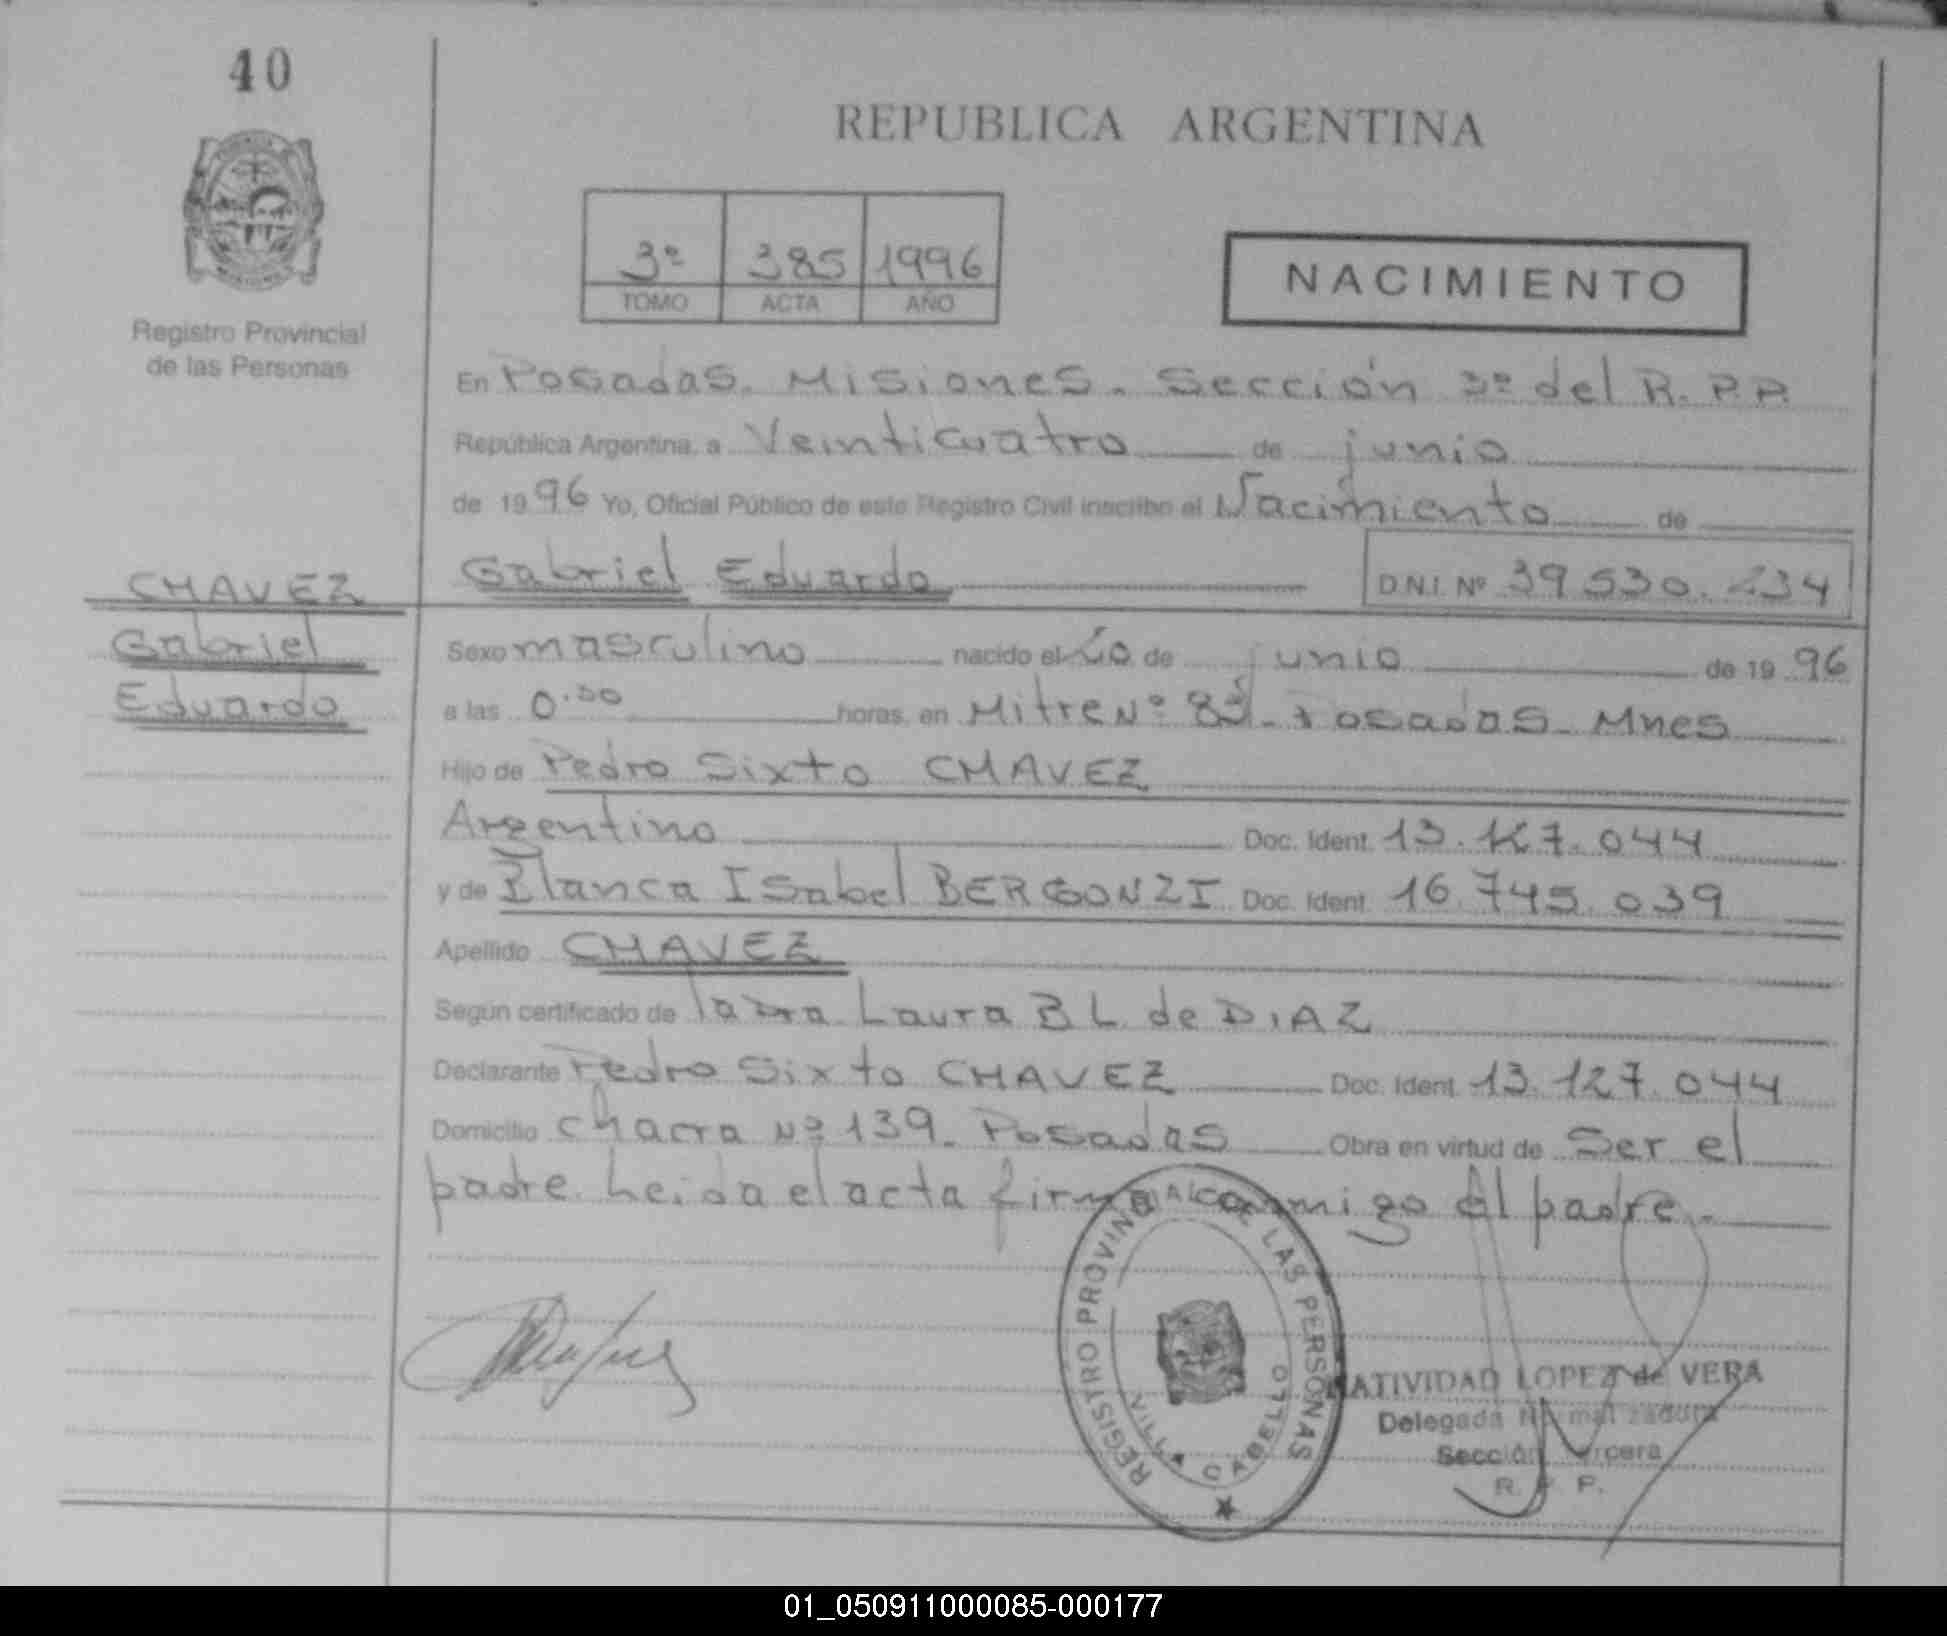 40
REPUBLICA ARGENTINA
3º 385 1996
TOMO ACTA AÑO
NACIMIENTO
Registro Provincial
de las Personas
En Posadas. Misiones. Sección 3º del R. P. P.
República Argentina, a Veinticuatro de junio
de 1996 Yo, Oficial Público de este Registro Civil inscribo el Nacimiento de
CHAVEZ
Gabriel
Eduardo
Gabriel Eduardo D.N.I. Nº 39.530.234
Sexo masculino nacido el 20 de junio de 1996
a las horas, en Mitre Nº Posadas. Mnes
Hijo de Pedro Sixto CHAVEZ
Argentino Doc. Ident. 13.127.044
y de Blanca Isabel BERGONZI Doc. Ident. 16.745.039
Apellido CHAVEZ
Según certificado de la Dra Laura B L de DIAZ
Declarante Pedro Sixto CHAVEZ Doc. Ident. 13.127.044
Domicilio Chacra Nº 139. Posadas Obra en virtud de Ser el
padre. Leida el acta firma conmigo el padre.
REGISTRO PROVINCIAL DE LAS PERSONAS
VILLA CABELLO
NATIVIDAD LOPEZ de VERA
Delegada Normalizadora
Sección Tercera
R. P. P.
01_050911000085-000177